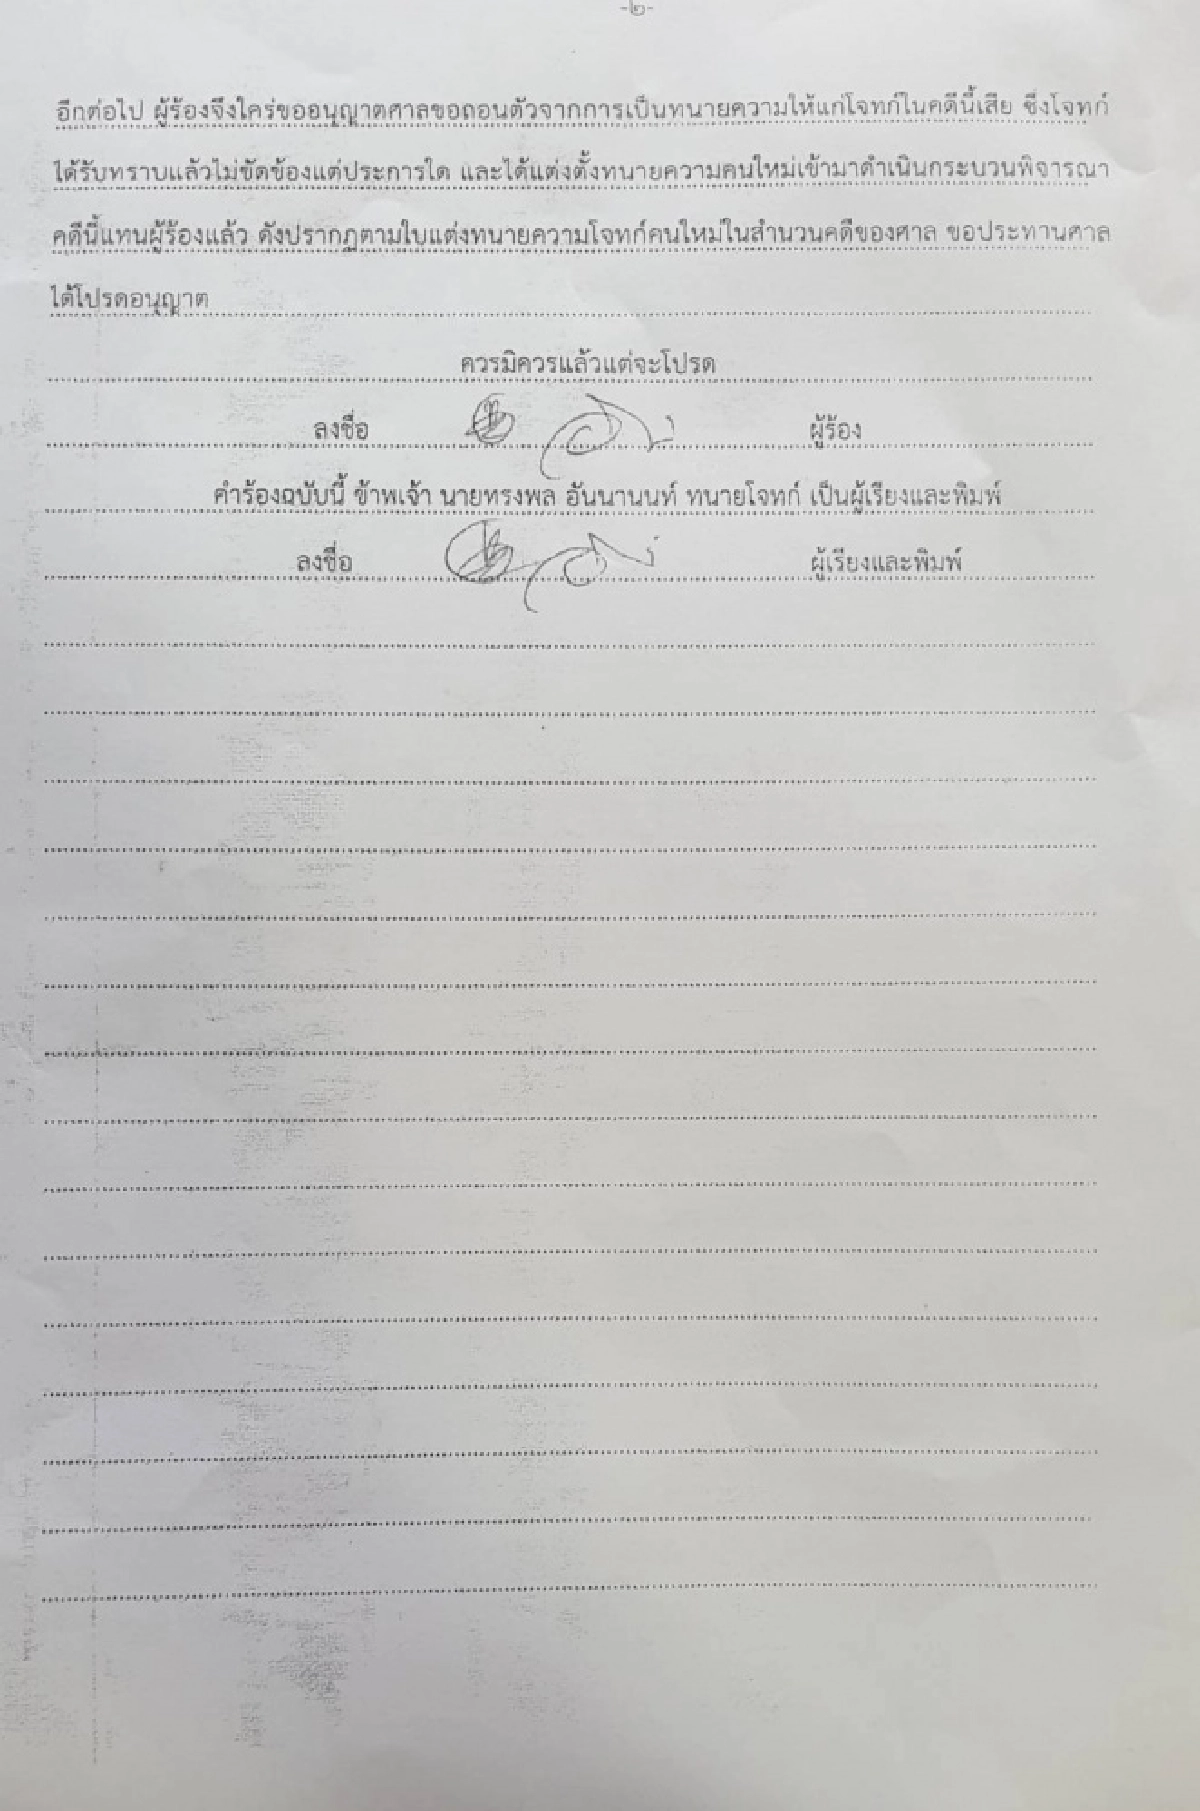 -๒-
อีกต่อไป ผู้ร้องจึงใคร่ขออนุญาตศาลขอถอนตัวจากการเป็นทนายความให้แก่โจทก์ในคดีนี้เสีย ซึ่งโจทก์
ได้รับทราบแล้วไม่ขัดข้องแต่ประการใด และได้แต่งตั้งทนายความคนใหม่เข้ามาดำเนินกระบวนพิจารณา
คดีนี้แทนผู้ร้องแล้ว ดังปรากฏตามใบแต่งทนายความโจทก์คนใหม่ในสำนวนคดีของศาล ขอประทานศาล
ได้โปรดอนุญาต
ควรมิควรแล้วแต่จะโปรด
ลงชื่อ ผู้ร้อง
คำร้องฉบับนี้ ข้าพเจ้า นายทรงพล อันนานนท์ ทนายโจทก์ เป็นผู้เรียงและพิมพ์
ลงชื่อ ผู้เรียงและพิมพ์